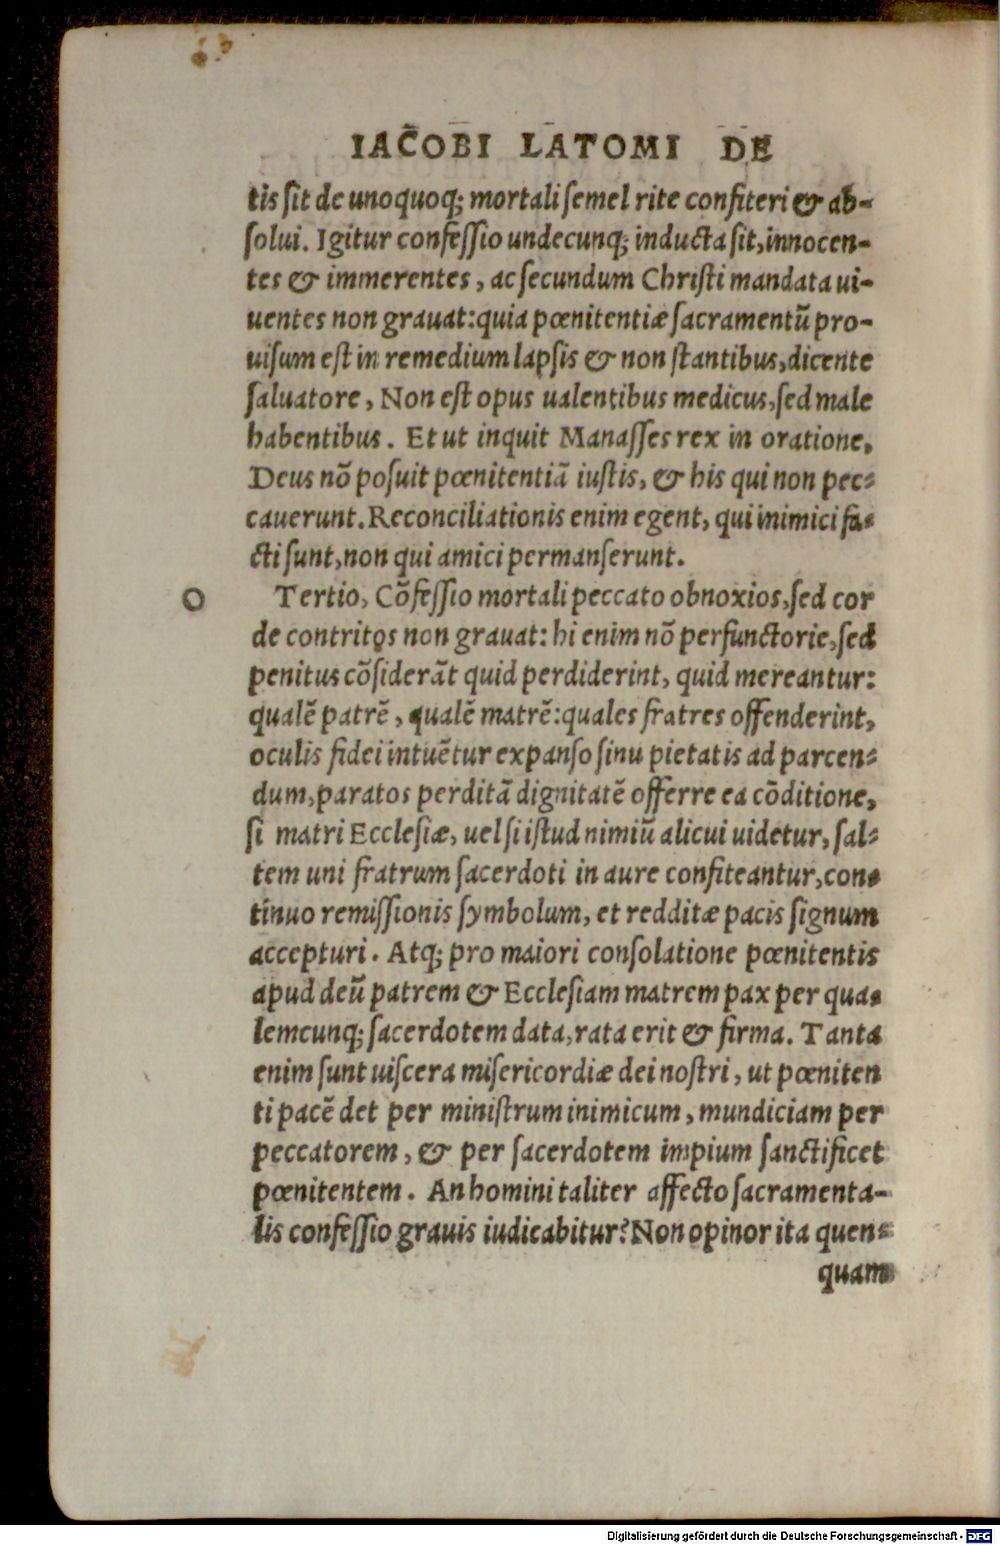 IACOBI LATOMI DE
tis sit de unoquoq; mortali semel rite confiteri & ab-
solui. Igitur confessio undecunq; inducta sit, innocen-
tes & immerentes, ac secundum Christi mandata ui-
uentes non grauat: quia pœnitentiæ sacramentũ pro-
uisum est in remedium lapsis & non stantibus, dicente
saluatore, Non est opus ualentibus medicus, sed male
habentibus. Et ut inquit Manasses rex in oratione,
Deus nõ posuit pœnitentiã iustis, & his qui non pec-
cauerunt. Reconciliationis enim egent, qui inimici fa-
cti sunt, non qui amici permanserunt.
O Tertio, Cõfessio mortali peccato obnoxios, sed cor
de contritos non grauat: hi enim nõ perfunctorie, sed
penitus cõsiderãt quid perdiderint, quid mereantur:
qualẽ patrẽ, qualẽ matrẽ: quales fratres offenderint,
oculis fidei intuẽtur expanso sinu pietatis ad parcen-
dum, paratos perditã dignitatẽ offerre ea cõditione,
si matri Ecclesiæ, uel si istud nimiũ alicui uidetur, sal-
tem uni fratrum sacerdoti in aure confiteantur, con-
tinuo remissionis symbolum, et redditæ pacis signum
accepturi. Atq; pro maiori consolatione pœnitentis
apud deũ patrem & Ecclesiam matrem pax per qua-
lemcunq; sacerdotem data, rata erit & firma. Tanta
enim sunt uiscera misericordiæ dei nostri, ut pœniten
ti pacẽ det per ministrum inimicum, mundiciam per
peccatorem, & per sacerdotem impium sanctificet
pœnitentem. An homini taliter affecto sacramenta-
lis confessio grauis iudicabitur? Non opinor ita quen-
quam
Digitalisierung gefördert durch die Deutsche Forschungsgemeinschaft - DFG